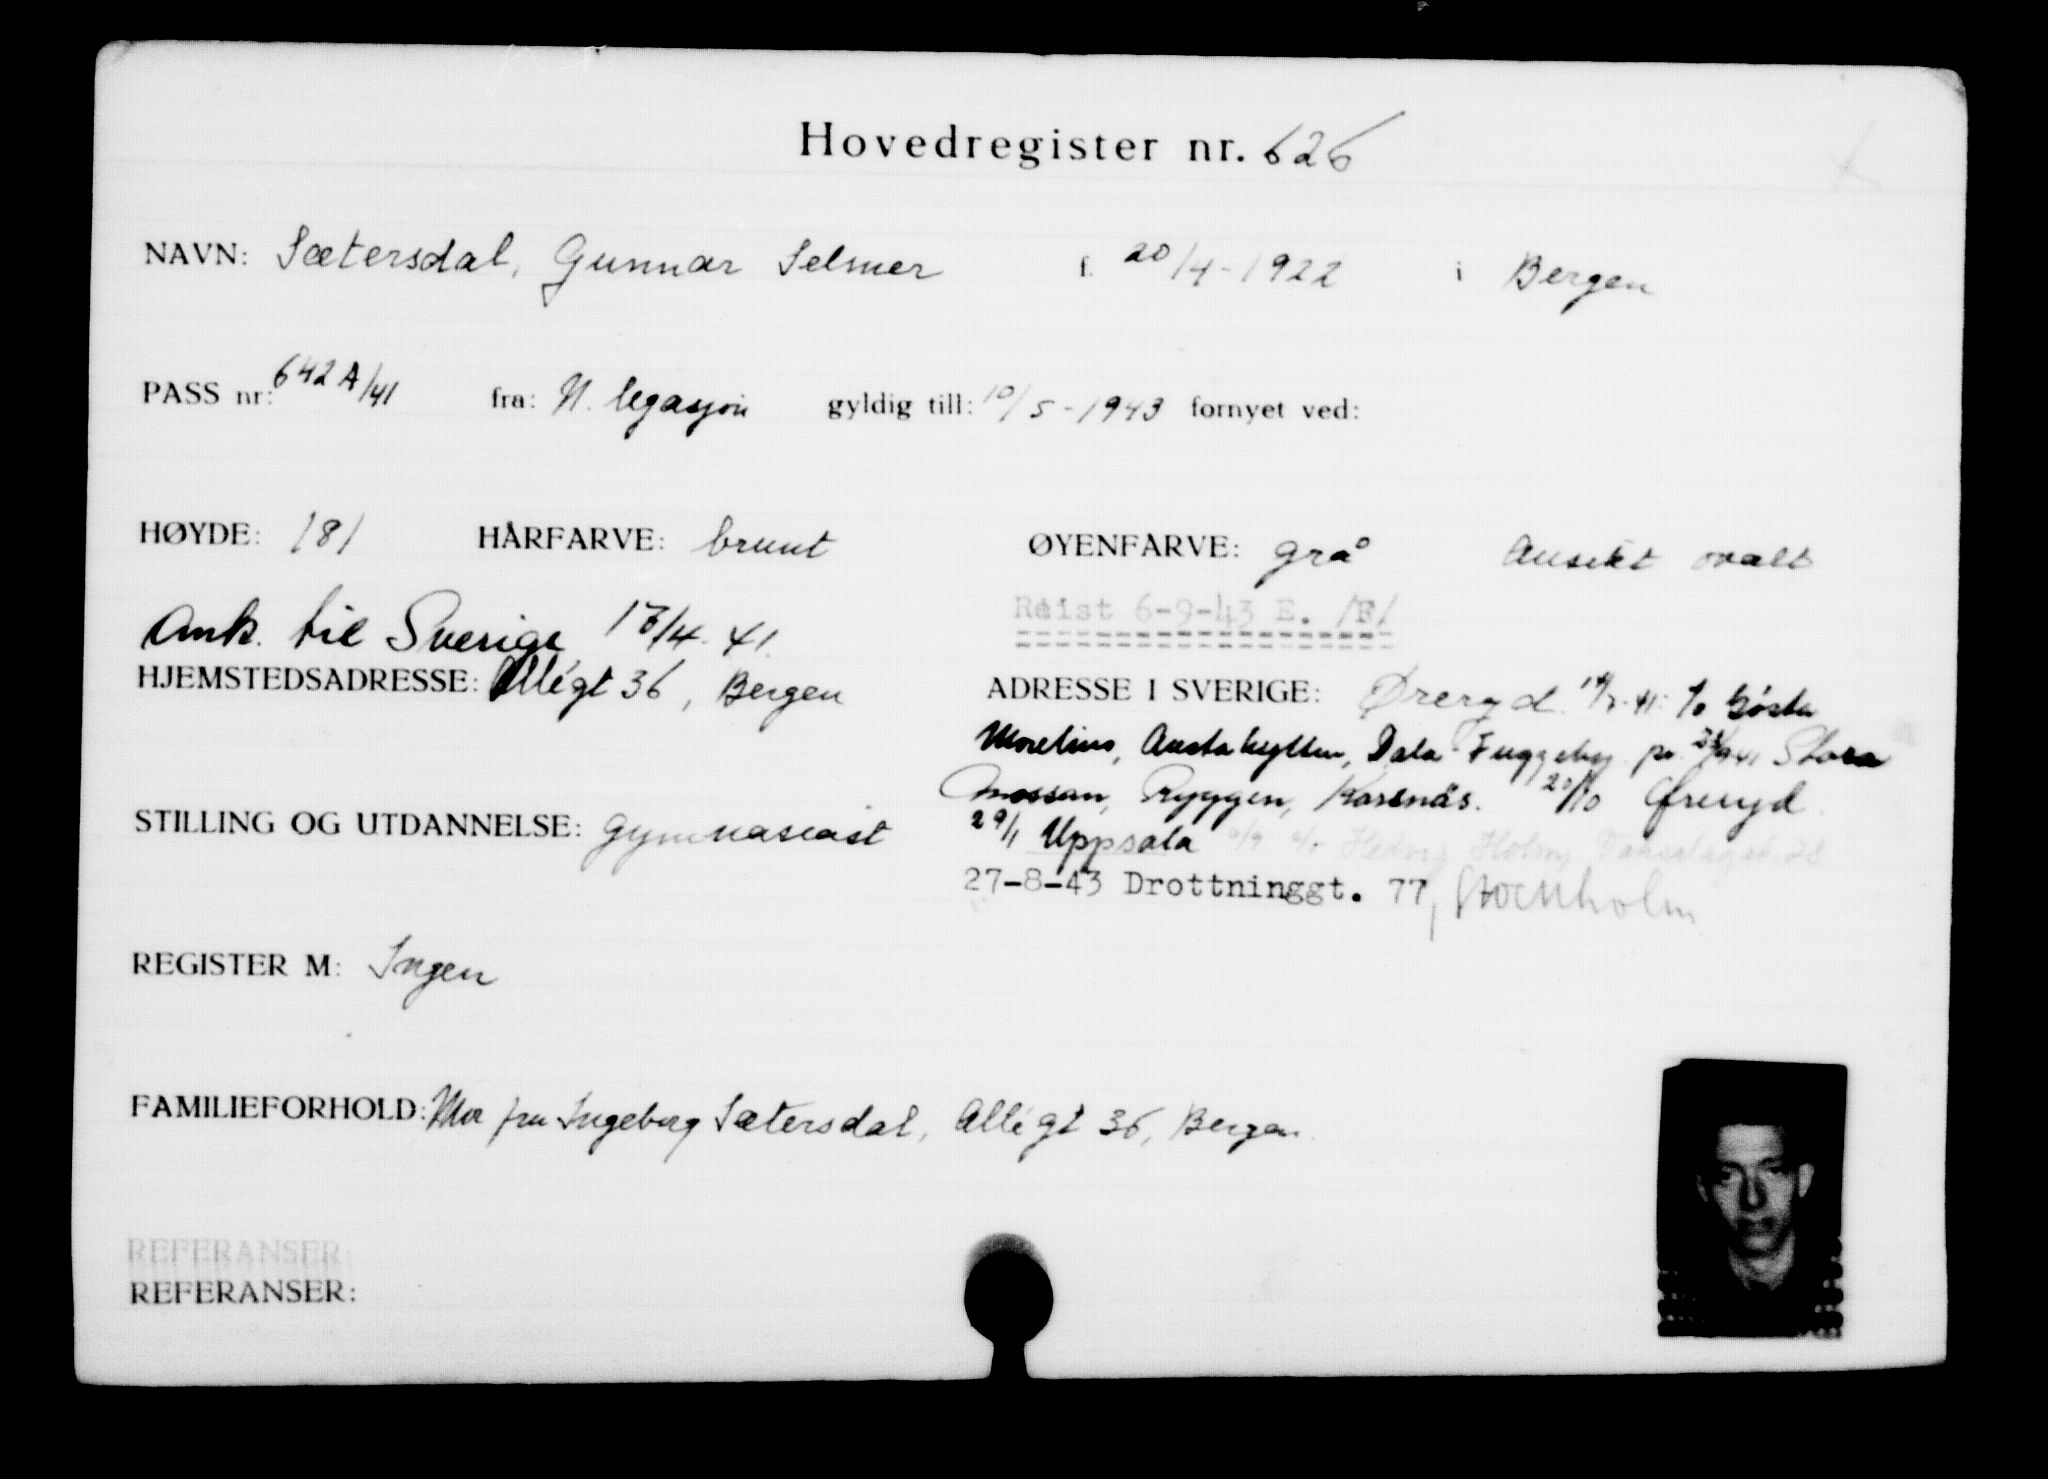 Hovedregister nr. 626
NAVN: Sætersdal, Gunnar Selmer f. 20/4-1922 i Bergen
PASS nr: 642 A/41 fra: N. legasjon gyldig till: 10/5-1943 fornyet ved:
HØYDE: 181 HÅRFARVE: brunt ØYENFARVE: grå Ansikt ovalt
Ank. til Sverige 13/4. 41. Reist 6-9-43 E. /F/
HJEMSTEDSADRESSE: Allégt 36, Bergen ADRESSE I SVERIGE: Øreryd 41. c/o Gösta
Morelius, Dala Fuggeby Stora
Mossan, Ryggen, Korsnäs. 20/10 Øreryd.
STILLING OG UTDANNELSE: gymnasiast 29/1 Uppsala Hedvig Holm
27-8-43 Drottninggt. 77, Stockholm
REGISTER M: Ingen
FAMILIEFORHOLD: Mor fru Ingeborg Sætersdal, Allégt 36, Bergen.
REFERANSER:
REFERANSER: